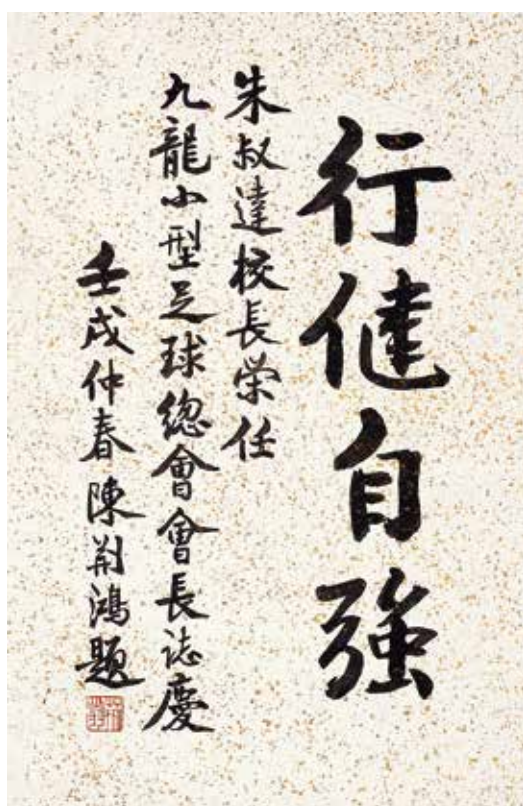 行健自強
朱叔達校長榮任
九龍小型足球總會會長誌慶
壬戌仲春陳荊鴻題